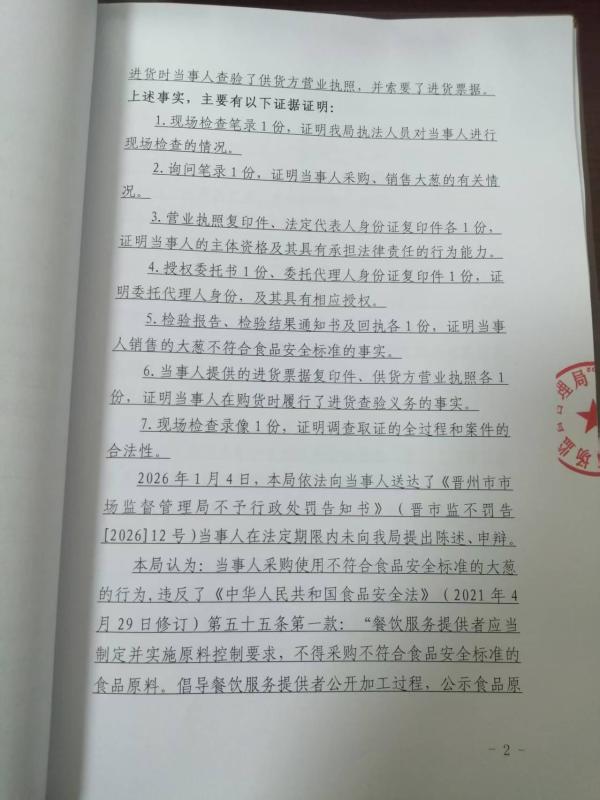 进货时当事人查验了供货方营业执照，并索要了进货票据。
上述事实，主要有以下证据证明：
1.现场检查笔录1份，证明我局执法人员对当事人进行
现场检查的情况。
2.询问笔录1份，证明当事人采购、销售大葱的有关情
况。
3.营业执照复印件、法定代表人身份证复印件各1份，
证明当事人的主体资格及其具有承担法律责任的行为能力。
4.授权委托书1份、委托代理人身份证复印件1份，证
明委托代理人身份，及其具有相应授权。
5.检验报告、检验结果通知书及回执各1份，证明当事
人销售的大葱不符合食品安全标准的事实。
6.当事人提供的进货票据复印件、供货方营业执照各1
份，证明当事人在购货时履行了进货查验义务的事实。
7.现场检查录像1份，证明调查取证的全过程和案件的
合法性。
2026年1月4日，本局依法向当事人送达了《晋州市市
场监督管理局不予行政处罚告知书》（晋市监不罚告
[2026]12号)当事人在法定期限内未向我局提出陈述、申辩。
本局认为：当事人采购使用不符合食品安全标准的大葱
的行为,违反了《中华人民共和国食品安全法》（2021年4
月29日修订）第五十五条第一款：“餐饮服务提供者应当
制定并实施原料控制要求，不得采购不符合食品安全标准的
食品原料。倡导餐饮服务提供者公开加工过程，公示食品原
- 2 -